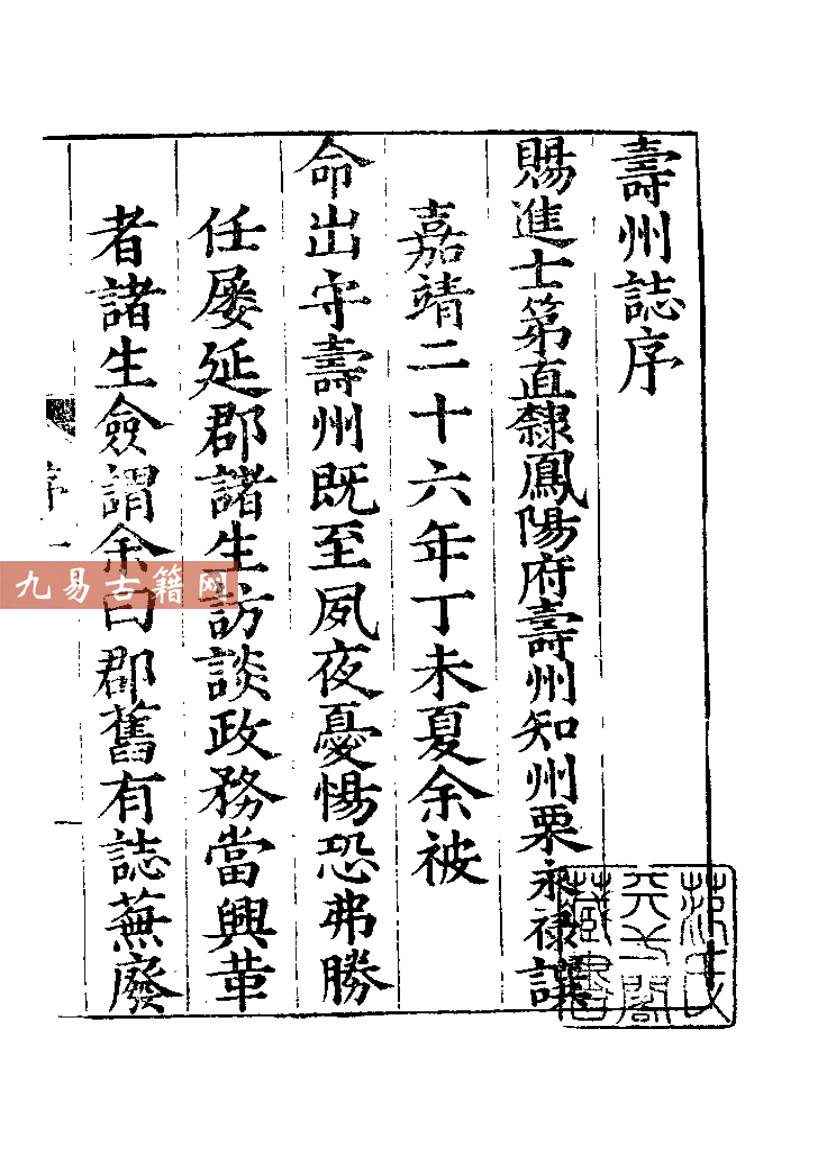 壽州誌序
賜進士第直隸鳳陽府壽州知州栗永祿譔
嘉靖二十六年丁未夏余被
命出守壽州既至夙夜憂惕恐弗勝
任屡延郡諸生訪談政務當興革
者諸生僉謂余曰郡舊有誌蕪廢
序一
范氏天一閣藏書
九易古籍网